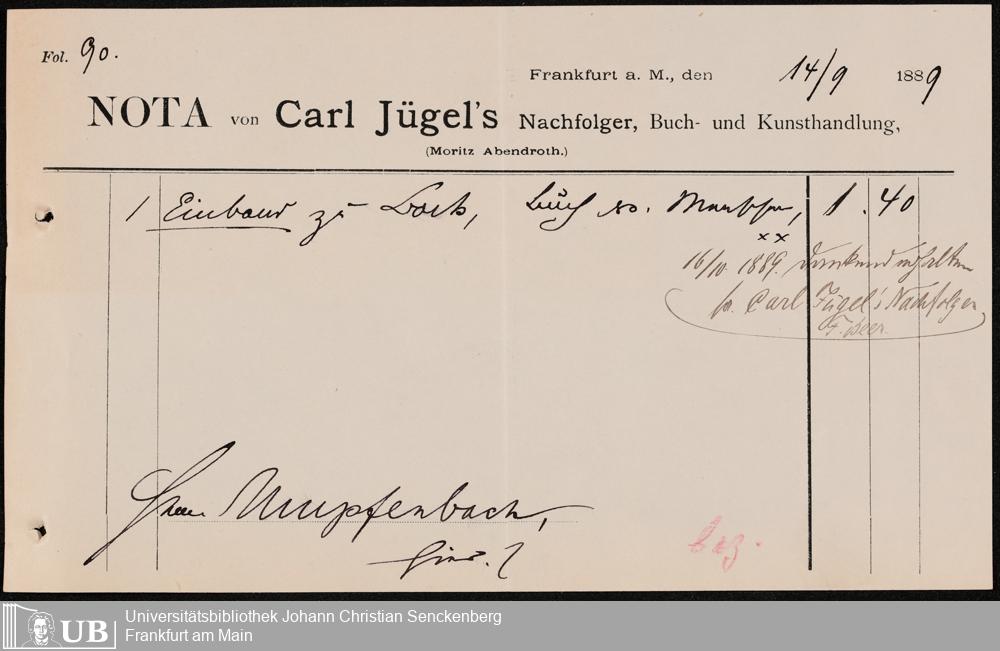 Fol. 90.
Frankfurt a. M., den 14/9 1889
NOTA von Carl Jügel's Nachfolger, Buch- und Kunsthandlung,
(Moritz Abendroth.)
1 Einband zu Bock, Buch 1.40
16/10. 1889. Dankend erhalten
Carl Jügel's Nachfolger
F. Beer
bez.
UB
Universitätsbibliothek Johann Christian Senckenberg
Frankfurt am Main